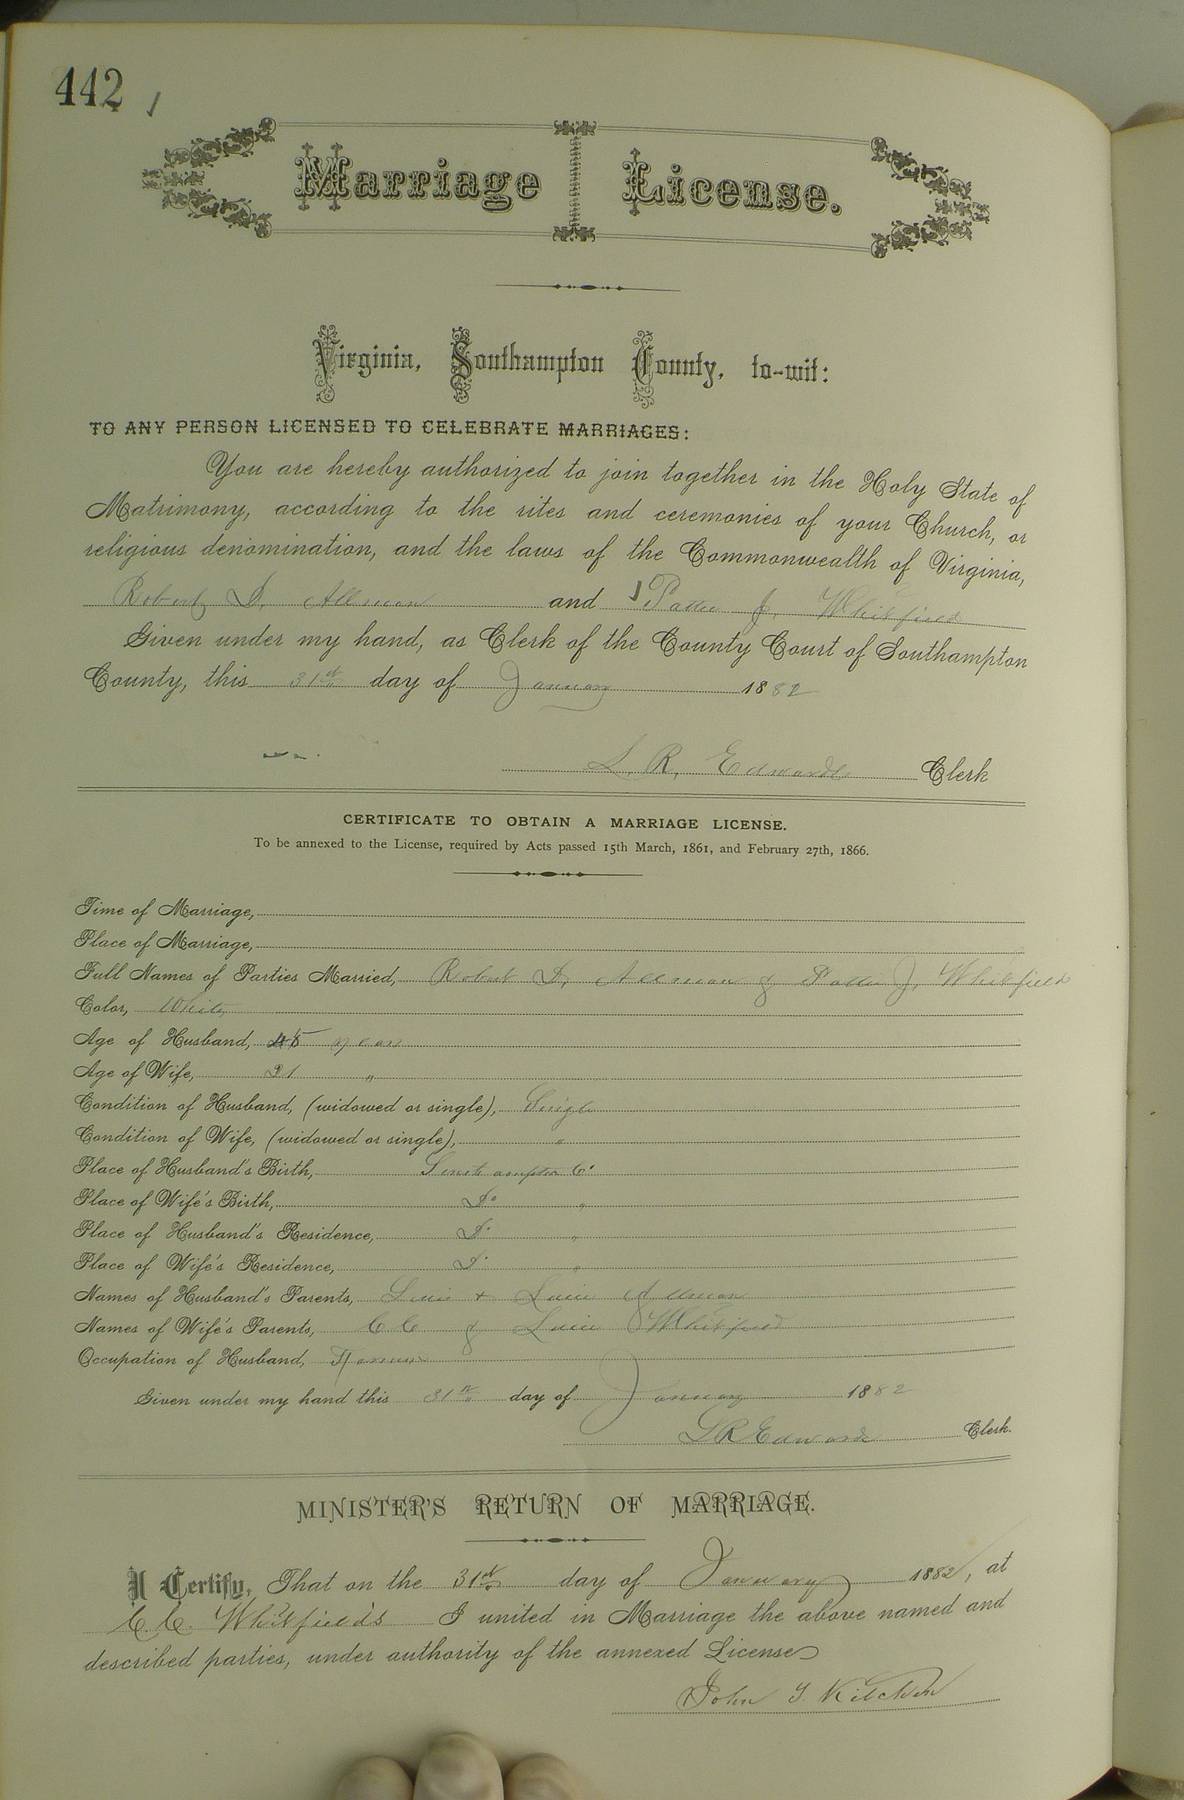 442
Marriage License.
Virginia, Southampton County, to-wit:
TO ANY PERSON LICENSED TO CELEBRATE MARRIAGES:
You are hereby authorized to join together in the Holy State of
Matrimony, according to the rites and ceremonies of your Church, or
religious denomination, and the laws of the Commonwealth of Virginia,
Robert D. Allmon and Pattie J. Whitfield
Given under my hand, as Clerk of the County Court of Southampton
County, this 31st day of January 1882
L. R. Edwards Clerk
CERTIFICATE TO OBTAIN A MARRIAGE LICENSE.
To be annexed to the License, required by Acts passed 15th March, 1861, and February 27th, 1866.
Time of Marriage,
Place of Marriage,
Full Names of Parties Married, Robert D. Allmon & Pattie J. Whitfield
Color, White
Age of Husband, years
Age of Wife, 21 "
Condition of Husband, (widowed or single), Single
Condition of Wife, (widowed or single), "
Place of Husband's Birth, Southampton Co
Place of Wife's Birth, Do "
Place of Husband's Residence, Do "
Place of Wife's Residence, Do "
Names of Husband's Parents, & Allmon
Names of Wife's Parents, C C & Whitfield
Occupation of Husband, Farmer
Given under my hand this 31st day of January 1882
L R Edwards Clerk.
MINISTER'S RETURN OF MARRIAGE.
I Certify, That on the 31st day of January 1882, at
C. C. Whitfield's I united in Marriage the above named and
described parties, under authority of the annexed License
John Kitchen